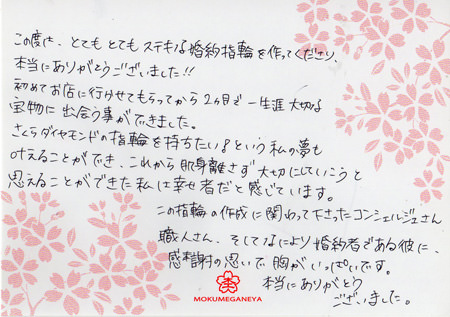 この度は、とてもとてもステキな婚約指輪を作ってくださり、
本当にありがとうございました!!
初めてお店に行かせてもらってから2ヶ月で一生涯大切な
宝物に出会う事ができました。
さくらダイヤモンドの指輪を持ちたい♡という私の夢も
叶えることができ、これから肌身離さず大切にしていこうと
思えることができた私は幸せ者だと感じています。
この指輪の作成に関わって下さったコンシェルジュさん
職人さん、そしてなにより婚約者である彼に、
感謝の思いで胸がいっぱいです。
本当にありがとう
ございました。
MOKUMEGANEYA